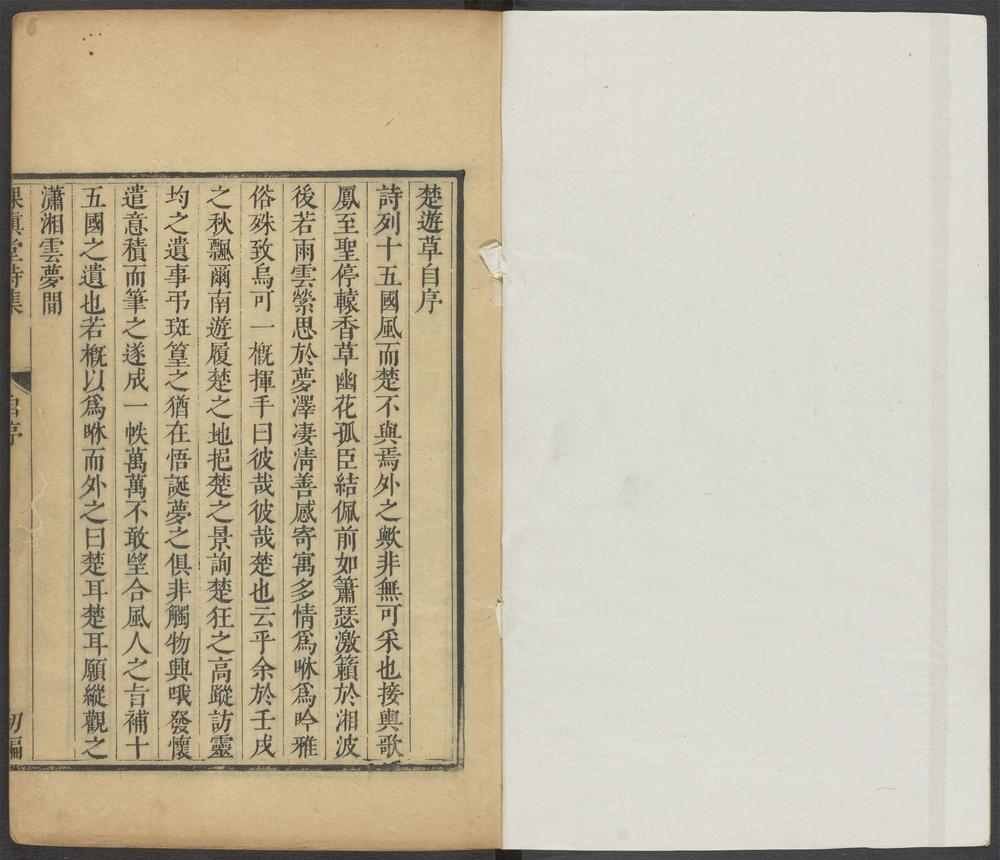 楚遊草自序
詩列十五國風而楚不與焉外之歟非無可采也接輿歌
鳳至聖停轅香草幽花孤臣結佩前如簫瑟激籟於湘波
後若雨雲縈思於夢澤凄清善感寄寓多情爲咻爲吟雅
俗殊致烏可一概揮手曰彼哉彼哉楚也云乎余於壬戌
之秋飄爾南遊履楚之地挹楚之景詢楚狂之高蹤訪靈
均之遺事弔斑篁之猶在悟誕夢之俱非觸物興哦發懷
遣意積而筆之遂成一帙萬萬不敢朢合風人之旨補十
五國之遺也若概以爲咻而外之曰楚耳楚耳願縱觀之
瀟湘雲夢間
課眞堂詩集 自序 初編